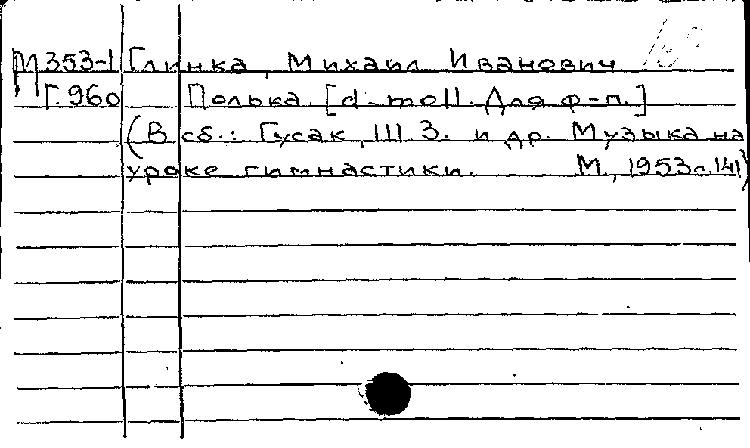 М353-1 Глинка, Михаил Иванович
Г.960 Полька. [d-moll. Для ф-п.]
(В сб.: Гусак, Ш.З. и др. Музыка на
уроке гимнастики. М., 1953 с.141)